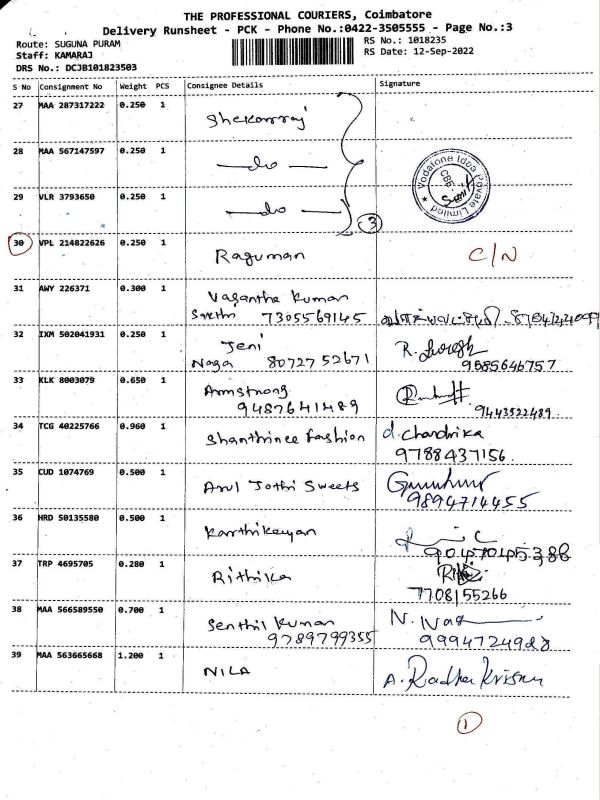 THE PROFESSIONAL COURIERS, Coimbatore
Delivery Runsheet - PCK - Phone No.:0422-3505555 - Page No.:3
Route: SUGUNA PURAM
RS No.: 1018235
Staff: KAMARAJ
RS Date: 12-Sep-2022
DRS No.: DCJB101823503
S No Consignment No Weight PCS Consignee Details Signature
27 MAA 287317222 0.250 1 Shekarraj
28 MAA 567147597 0.250 1 —do—
Vodafone Idea Private Limited
CBE
29 VLR 3793650 0.250 1 —do—
3
30 VPL 214822626 0.250 1 Raguman C/N
31 AWY 226371 0.300 1 Vasantha Kumar
7305569145
32 IXM 502041931 0.250 1 Jeni R. Suresh
Naga 8072752671 9585646757
33 KLK 8003079 0.650 1 Armstrong
9487641489 9443522489
34 TCG 40225766 0.960 1 Shanthinee Fashion d. Chandrika
9788437156
35 CUD 1074769 0.500 1 Arul Jothi Sweets
9894714455
36 HRD 50135580 0.500 1 Karthikeyan
9047045388
37 TRP 4695705 0.280 1 Rithika
7708155266
38 MAA 566589550 0.700 1 Senthil Kumar
9789799355 9994724928
39 MAA 563665668 1.200 1 NILA A. Radha Krisnan
1